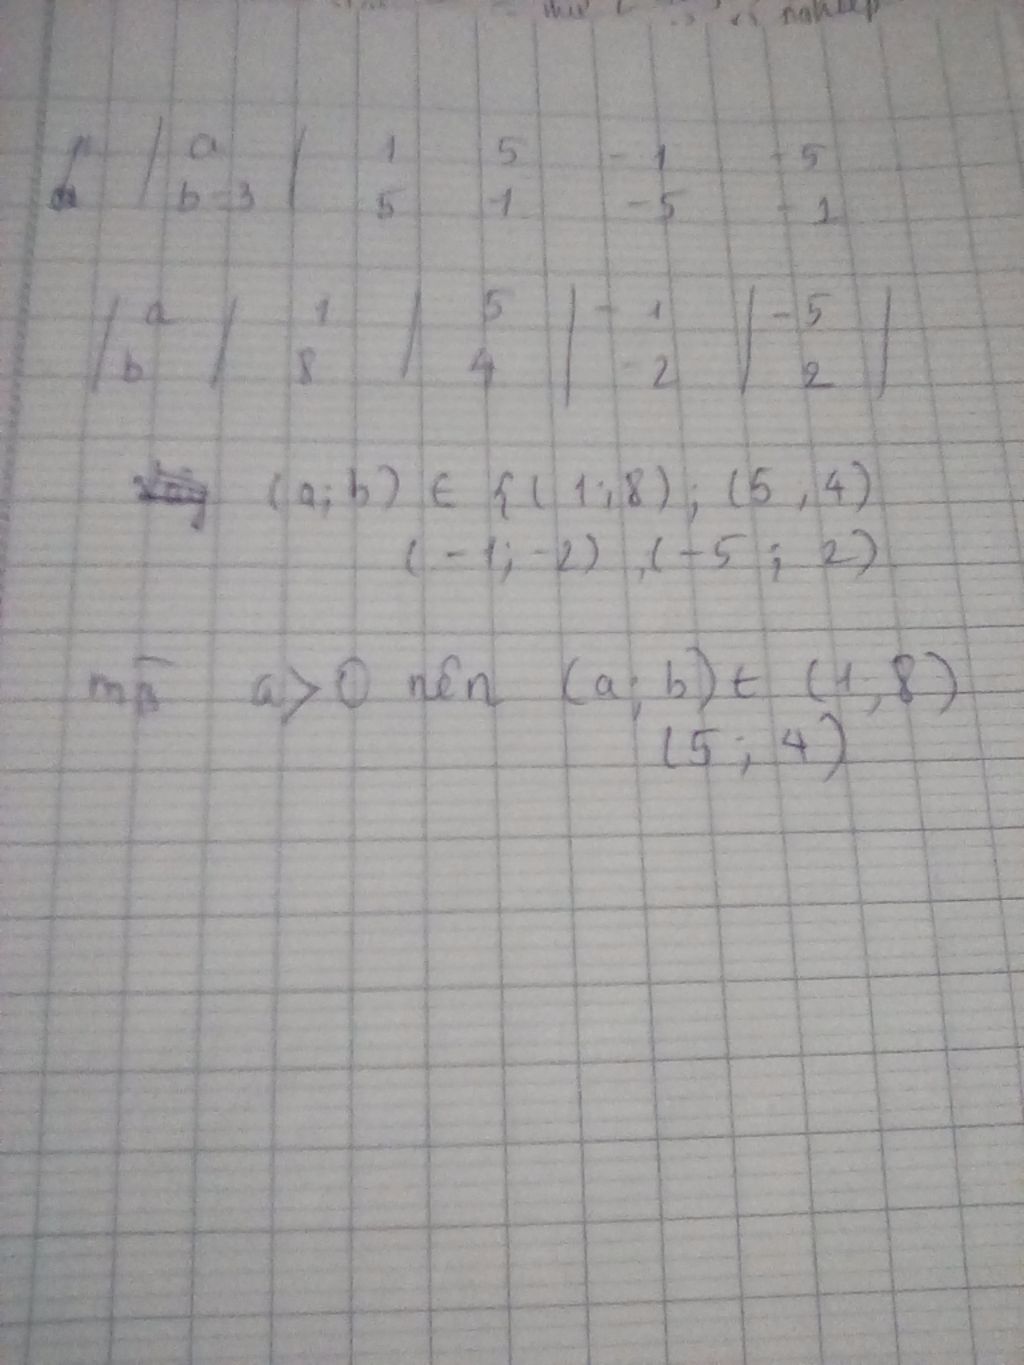 a | 1 5 -1 -5
b-3 | 5 1 -5 -1
| a | 1 | 5 | -1 | -5 |
| b | 8 | 4 | -2 | 2 |
(a; b) ∈ {(1; 8); (5, 4)
(-1; -2), (-5; 2)
mà a>0 nên (a; b) ∈ (1, 8)
(5; 4)